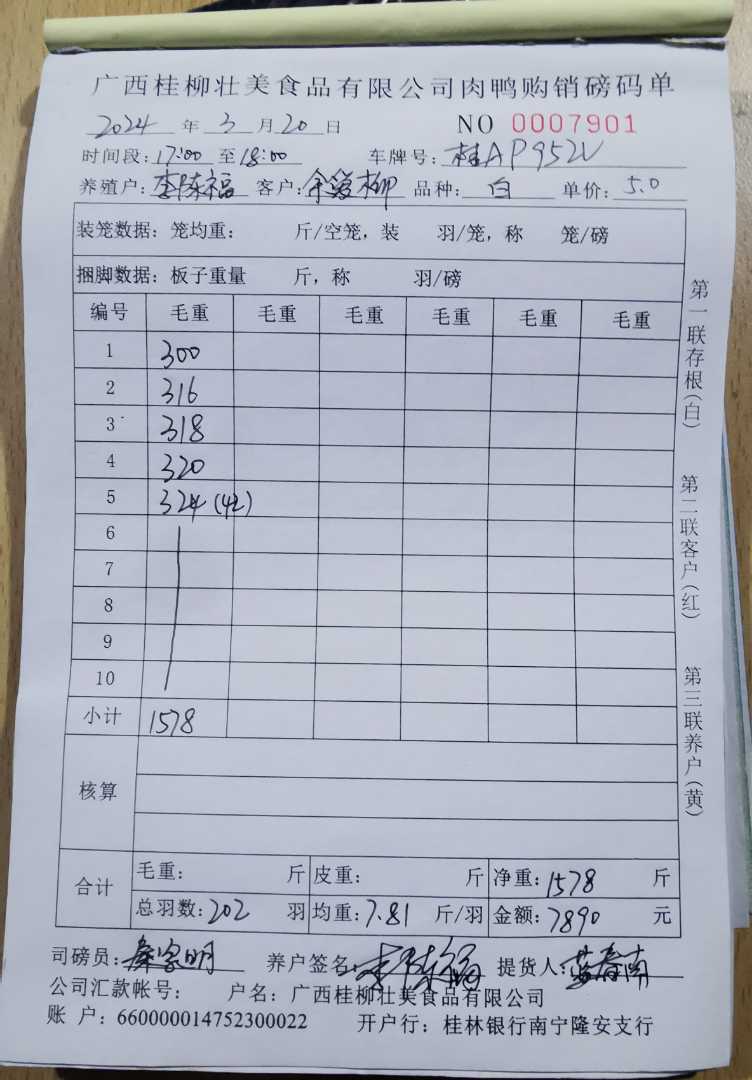 广西桂柳壮美食品有限公司肉鸭购销磅码单
2024 年 3 月 20 日 NO 0007901
时间段: 17:00 至 18:00 车牌号: 桂AP952V
养殖户: 李陈福 客户: 余爱柳 品种: 白 单价: 5.0
装笼数据: 笼均重: 斤/空笼, 装 羽/笼, 称 笼/磅
捆脚数据: 板子重量 斤, 称 羽/磅
编号 毛重 毛重 毛重 毛重 毛重 毛重
1 300
2 316
3 318
4 320
5 324 (42)
6
7
8
9
10
小计 1578
核算
合计 毛重: 斤 皮重: 斤 净重: 1578 斤
总羽数: 202 羽 均重: 7.81 斤/羽 金额: 7890 元
司磅员: 秦家明 养户签名: 李陈福 提货人: 黄春南
公司汇款帐号: 户名: 广西桂柳壮美食品有限公司
账 户: 660000014752300022 开户行: 桂林银行南宁隆安支行
第一联存根(白)
第二联客户(红)
第三联养户(黄)